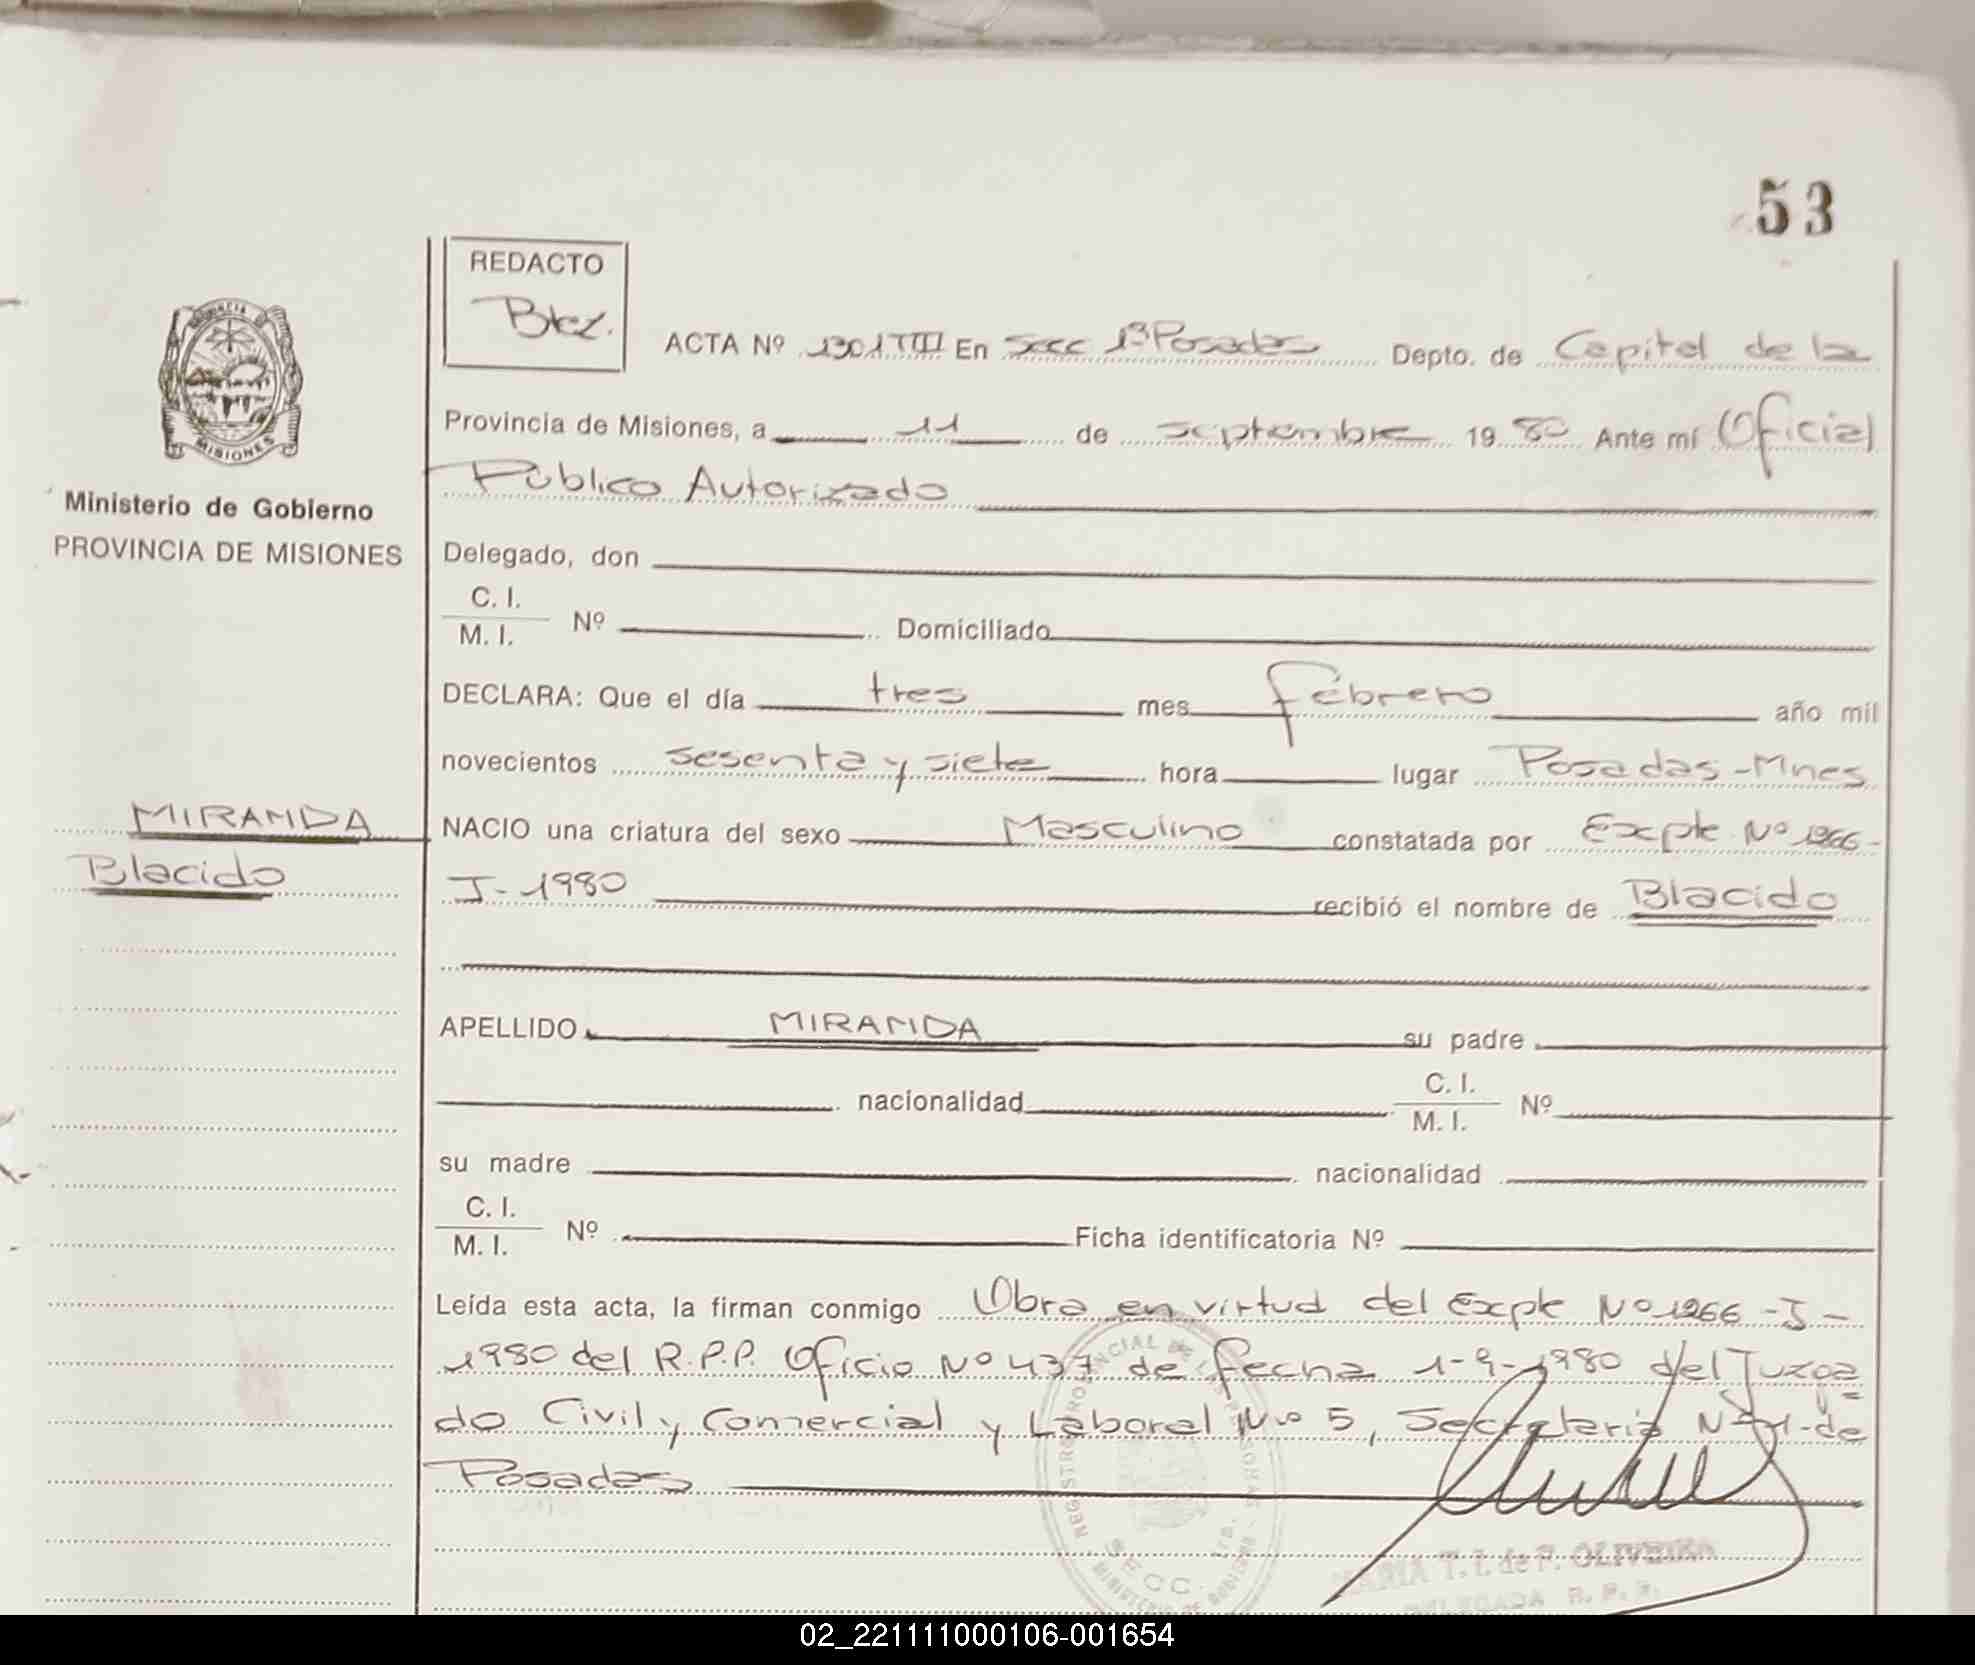 53
REDACTO
Btez.
ACTA Nº 1301 TIII En Secc 1ª Posadas Depto. de Capital de la
Provincia de Misiones, a 11 de septiembre 1980 Ante mí Oficial
Público Autorizado
Ministerio de Gobierno
PROVINCIA DE MISIONES
MISIONES
Delegado, don
C. I.
M. I.
Nº Domiciliado
DECLARA: Que el día tres mes febrero año mil
novecientos sesenta y siete hora lugar Posadas-Mnes
MIRANDA
Blacido
NACIO una criatura del sexo Masculino constatada por Expte Nº 1266-
J-1980 recibió el nombre de Blacido
APELLIDO MIRANDA su padre
nacionalidad C. I.
M. I. Nº
su madre nacionalidad
C. I.
M. I. Nº Ficha identificatoria Nº
Leída esta acta, la firman conmigo Obra en virtud del Expte Nº 1266-J-
1980 del R.P.P. Oficio Nº 437 de fecha 1-9-1980 del Juzga
do Civil y Comercial y Laboral Nº 5, Secretaria Nº 1-de
Posadas
MARIA T. I. de P. OLIVEIRA
DELEGADA R. P. P.
SECC.
02_221111000106-001654